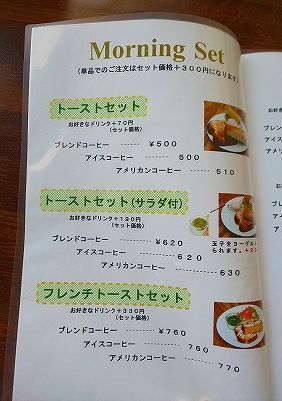 Morning Set
(単品でのご注文はセット価格+300円になります)
トーストセット
お好きなドリンク+70円
(セット価格)
ブレンドコーヒー ・・・・・・ ¥500
アイスコーヒー ・・・・・・ 500
アメリカンコーヒー ・・・・・・ 510
トーストセット(サラダ付)
お好きなドリンク+190円
(セット価格)
ブレンドコーヒー ・・・・・・ ¥620
アイスコーヒー ・・・・・・ 620
アメリカンコーヒー ・・・・・・ 630
玉子をヨーグルト
られます。
フレンチトーストセット
お好きなドリンク+330円
(セット価格)
ブレンドコーヒー ・・・・・・ ¥760
アイスコーヒー ・・・・・・ 760
アメリカンコーヒー ・・・・・・ 770